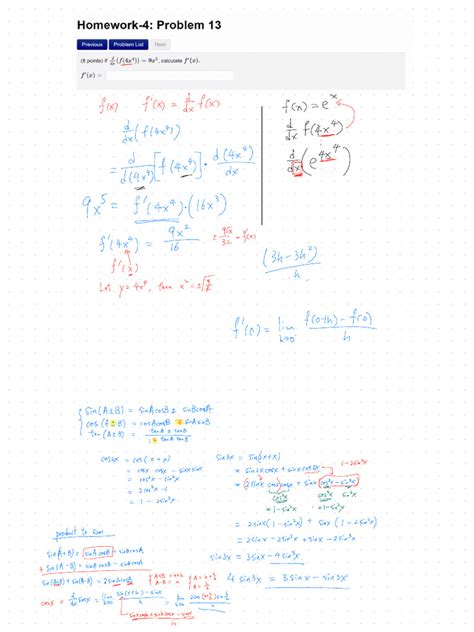 Homework-4: Problem 13
Previous Problem List Next
(8 points) d/dx (f(4x⁴)) = 9x⁵, calculate f'(x).
f'(x) =
f(x) f'(x) = d/dx f(x)
d/dx (f(4x⁴))
= d/d(4x⁴) [f(4x⁴)] · d(4x⁴)/dx
9x⁵ = f'(4x⁴)·(16x³)
f'(4x⁴) = 9x²/16
f'(x)
Let y = 4x⁴, then x² = ±√(y/4)
f(x) = eˣ
d/dx f(4x⁴)
d/dx (e^(4x⁴))
(3h-3h²)/h
f'(0) = lim h→0 (f(0+h) - f(0))/h
sin(A±B) = sinAcosB ± sinBcosA
tan(A±B) = (tanA ± tanB)/
cos2x = cos(x+x)
= cosx·cosx - sinx sinx
= cos²x - sin²x
= 2cos²x - 1
= 1 - 2sin²x
sin3x = sin(2x+x)
= sin2x cosx + sinx cos2x
1-2sin²x
= 2sinx cosx cosx + sinx cos²x - sin²x
cos²x
cos²x sin²x
= 1-sin²x
= 2sinx (1-sin²x) + sinx (1-2sin²x)
= 2sinx - 2sin³x + sinx - 2sin³x
sin3x = 3sinx - 4sin³x
4sin³x = 3sinx - sin3x
product to sum
sin(A+B) = sinAcosB + sinBcosA
+ sin(A-B) = sinAcosB - sinBcosA
sin(A+B) + sin(A-B) = 2sinAcosB
cosx = d/dx sinx = lim h→0 (sin(x+h) - sinx)/h